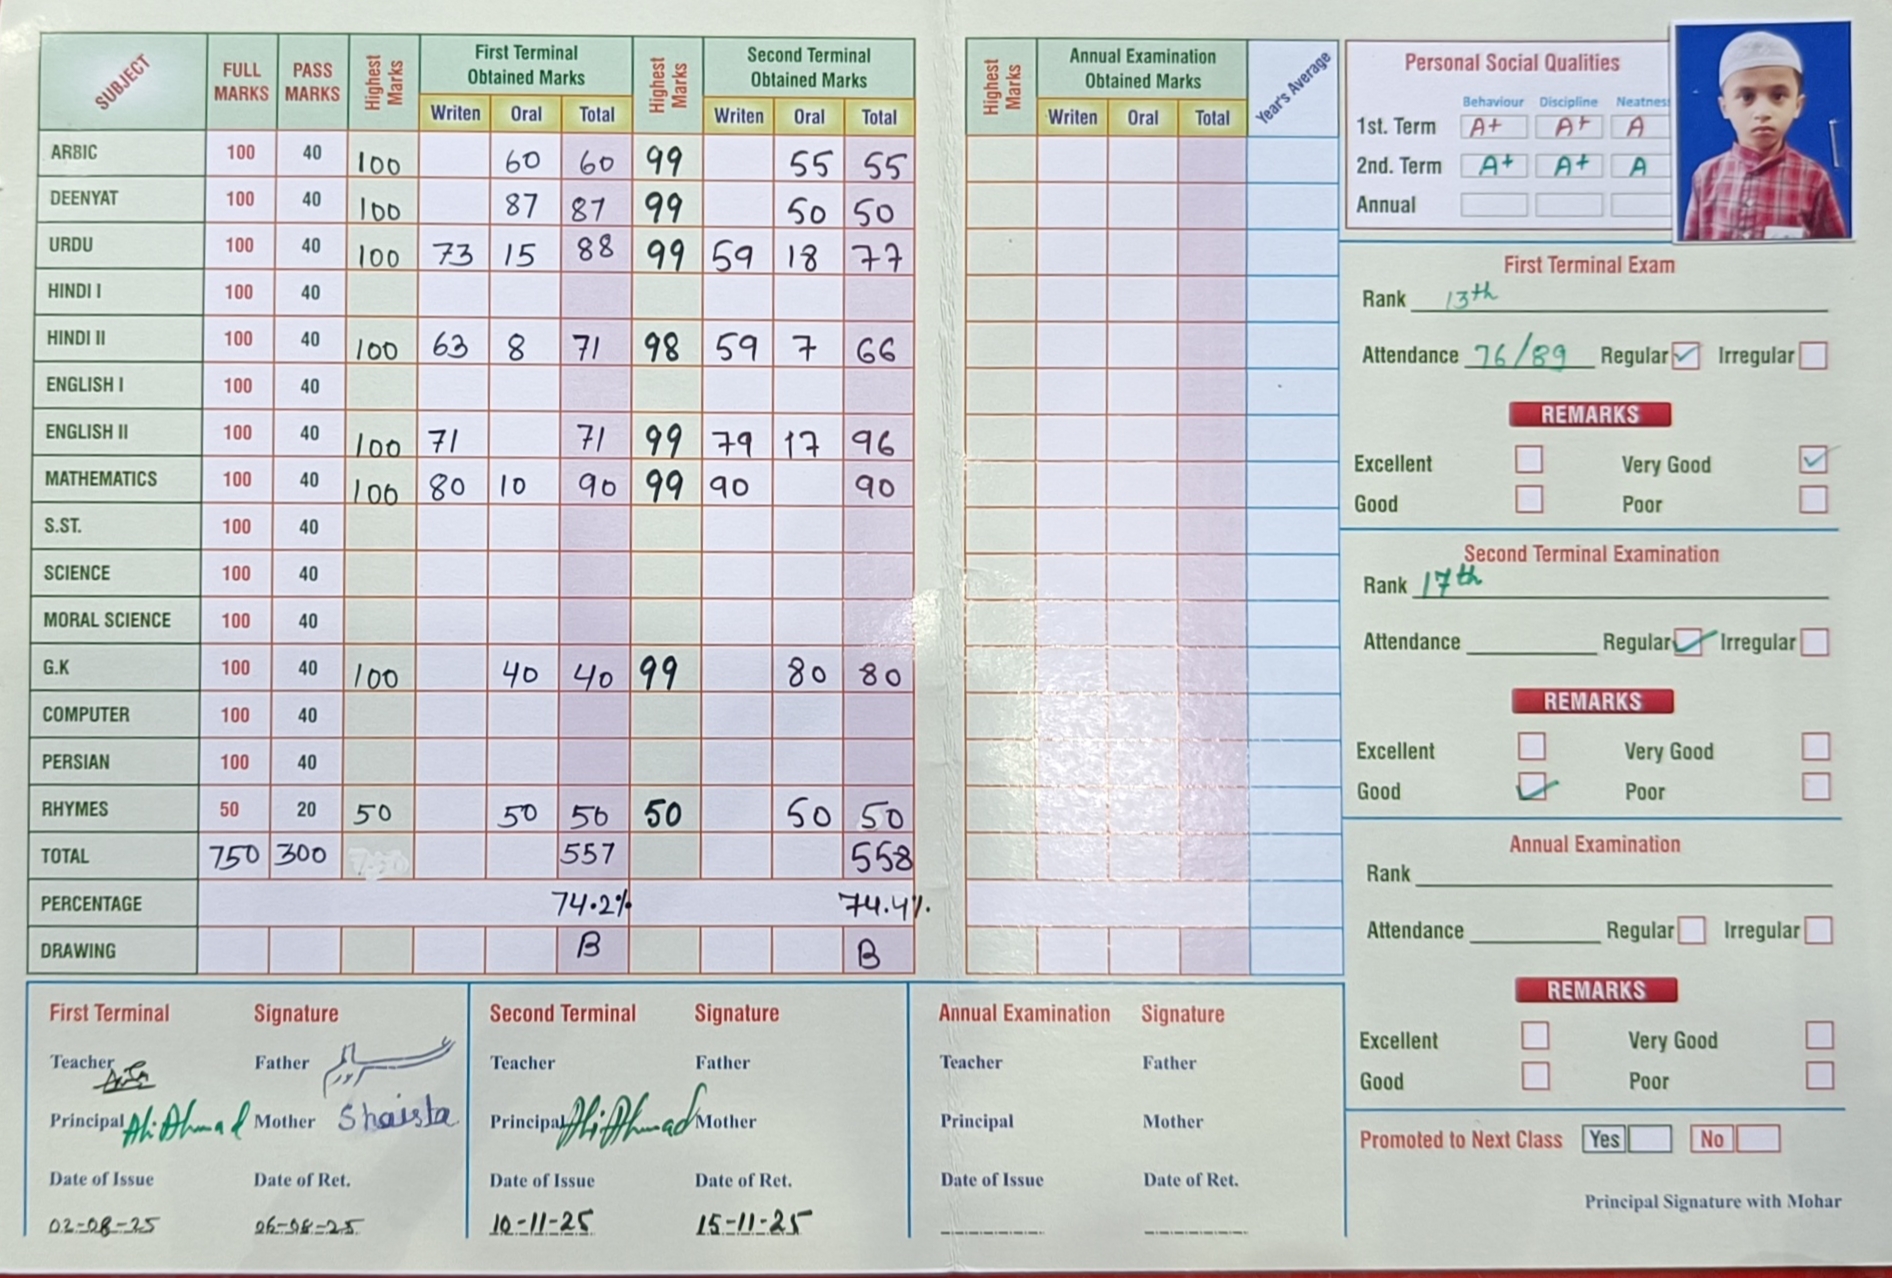 SUBJECT FULL MARKS PASS MARKS Highest Marks First Terminal Obtained Marks Writen Oral Total Highest Marks Second Terminal Obtained Marks Writen Oral Total Highest Marks Annual Examination Obtained Marks Writen Oral Total Year's Average
ARBIC 100 40 100 60 60 99 55 55
DEENYAT 100 40 100 87 87 99 50 50
URDU 100 40 100 73 15 88 99 59 18 77
HINDI I 100 40
HINDI II 100 40 100 63 8 71 98 59 7 66
ENGLISH I 100 40
ENGLISH II 100 40 100 71 71 99 79 17 96
MATHEMATICS 100 40 100 80 10 90 99 90 90
S.ST. 100 40
SCIENCE 100 40
MORAL SCIENCE 100 40
G.K 100 40 100 40 40 99 80 80
COMPUTER 100 40
PERSIAN 100 40
RHYMES 50 20 50 50 50 50 50 50
TOTAL 750 300 557 558
PERCENTAGE 74.2% 74.4%.
DRAWING B B
First Terminal Signature
Teacher Father
Principal Ali Ahmad Mother Shaista
Date of Issue Date of Ret.
02-08-25 06-08-25
Second Terminal Signature
Teacher Father
Principal Ali Ahmad Mother
Date of Issue Date of Ret.
10-11-25 15-11-25
Annual Examination Signature
Teacher Father
Principal Mother
Date of Issue Date of Ret.
Personal Social Qualities
Behaviour Discipline Neatness
1st. Term A+ A+ A
2nd. Term A+ A+ A
Annual
First Terminal Exam
Rank 13th
Attendance 76/89 Regular Irregular
REMARKS
Excellent Very Good
Good Poor
Second Terminal Examination
Rank 17th
Attendance Regular Irregular
REMARKS
Excellent Very Good
Good Poor
Annual Examination
Rank
Attendance Regular Irregular
REMARKS
Excellent Very Good
Good Poor
Promoted to Next Class Yes No
Principal Signature with Mohar